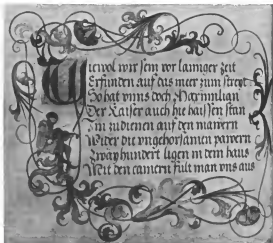 Wiewol wir sein vor lainiger zeit
Erfunden auf das meer zum streyt
So hat vnns doch Maximilian
Der Kaiser auch hie haissen stan
Im zudienen auf den mawern
Wider die vngehorsamen pawern
Zway hundert ligen in dem haus
Mit den camern fult man vns aus